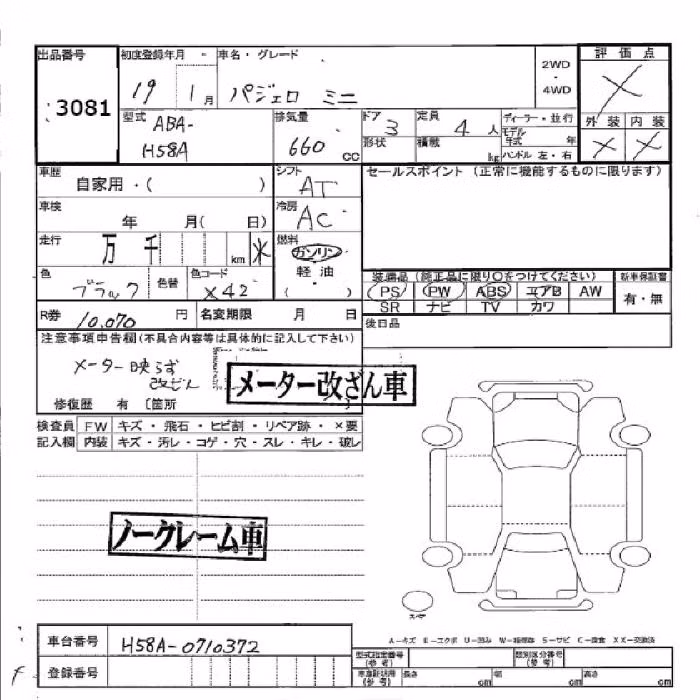 出品番号 初度登録年月 車名・グレード 2WD・4WD 評価点
3081 19 1月 パジェロ ミニ ×
型式 ABA-H58A 排気量 660 cc ドア 3 形状 定員 4 人 積載 kg ディーラー・並行 モデル年式 年 ハンドル 左・右 外装 × 内装 ×
車歴 自家用・( ) シフト AT セールスポイント (正常に機能するものに限ります)
車検 年 月( 日) 冷房 AC
走行 万 千 km ※ 燃料 ガソリン 軽油 ( )
色 ブラック 色替 色コード X42 装備品 (純正品に限り○をつけてください) 新車保証書
PS PW ABS エアB AW 有・無
SR ナビ TV カワ
R券 10,070 円 名変期限 月 日 後日品
注意事項申告欄(不具合内容等は具体的に記入して下さい)
メーター映らず
改ざん
メーター改ざん車
修復歴 有 〔箇所
検査員記入欄 FW キズ・飛石・ヒビ割・リペア跡・×要
内装 キズ・汚レ・コゲ・穴・スレ・キレ・破レ
ノークレーム車
車台番号 H58A-0710372
登録番号
型式指定番号 (参考) 類別区分番号 (参考)
長さ cm 幅 cm 高さ cm